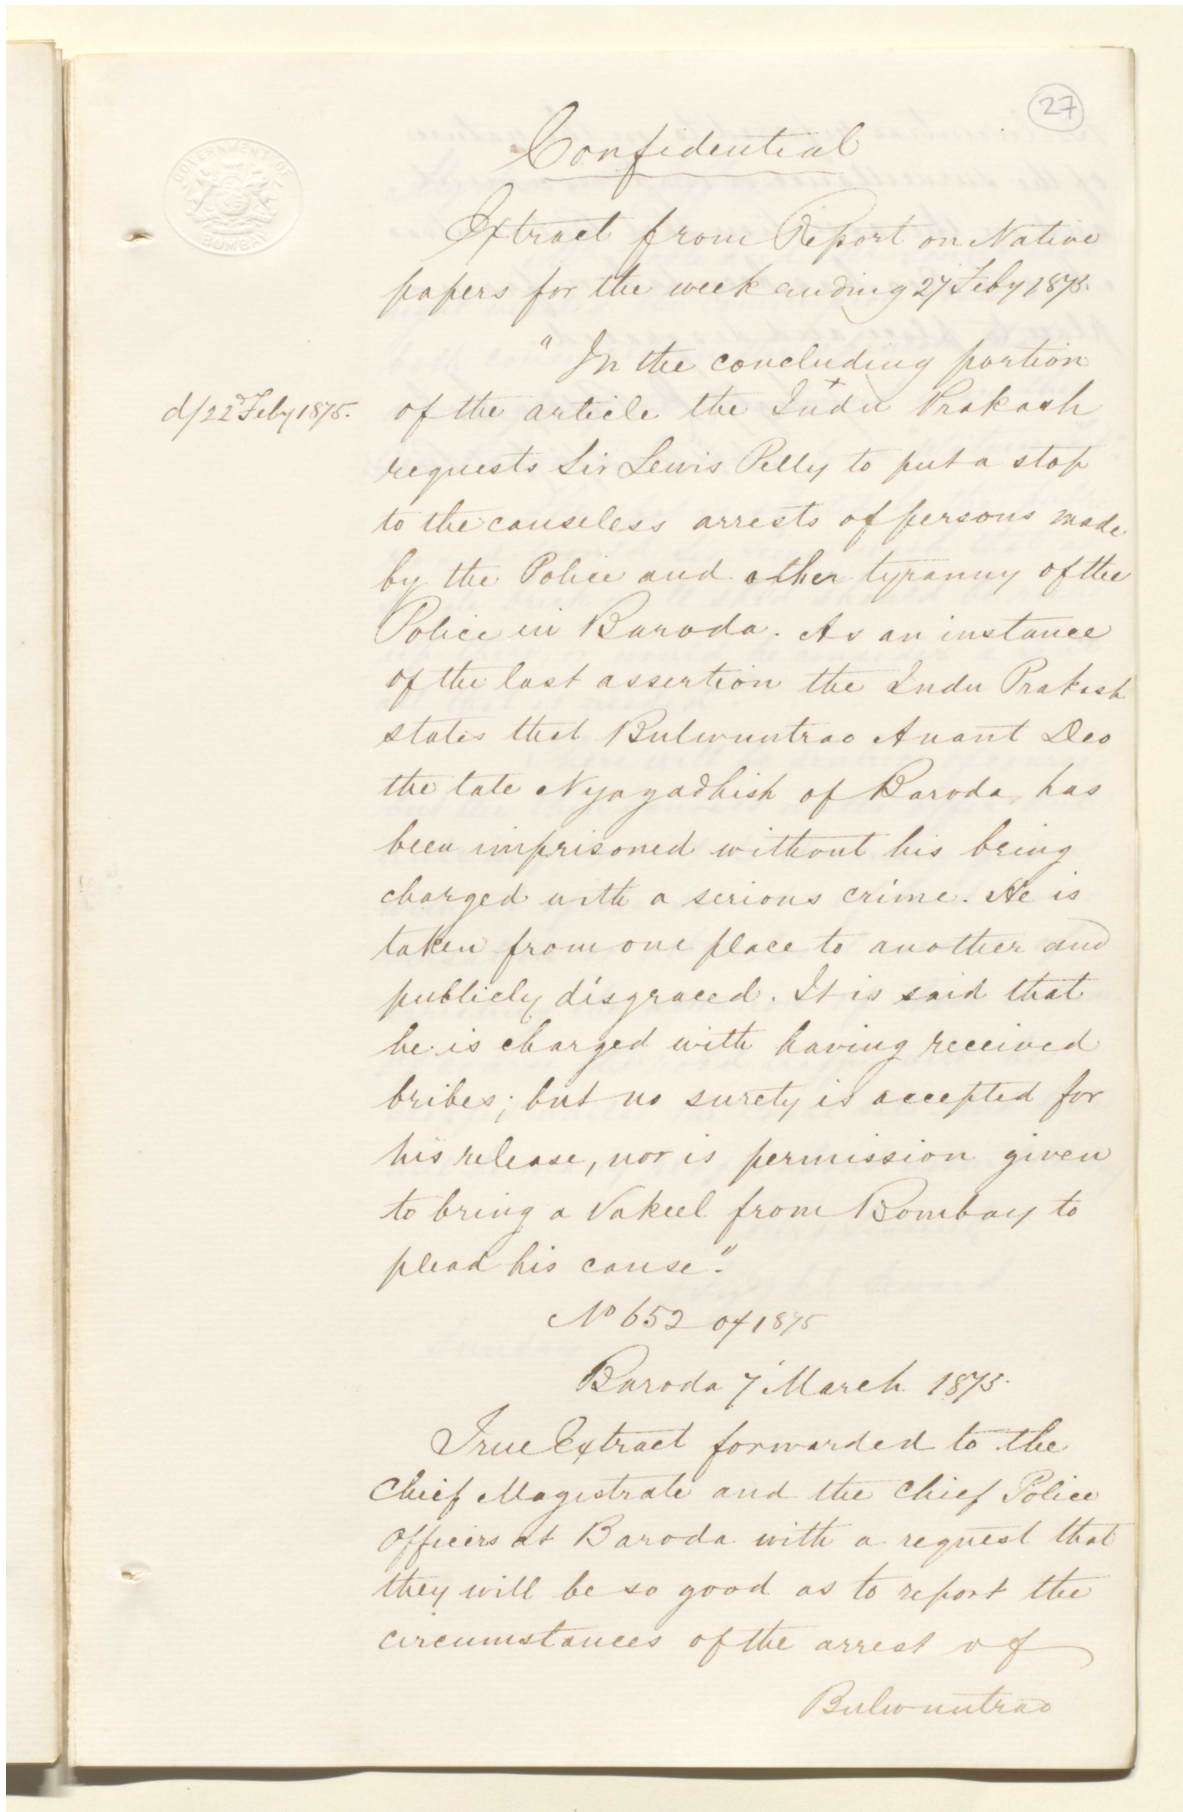 27
GOVERNMENT OF
BOMBAY
Confidential
Extract from Report on Native
papers for the week ending 27 Feby 1875.
"In the concluding portion
d/22d Feby 1875.
of the article the Indu + Prakash
requests Sir Lewis Pelly to put a stop
to the causeless arrests of persons made
by the Police and other tyranny of the
Police in Baroda. As an instance
of the last assertion the Indu Prakash
states that Bulwuntrao Anant Deo
the late Nyayadhish of Baroda has
been imprisoned without his being
charged with a serious crime. He is
taken from one place to another and
publicly disgraced. It is said that
he is charged with having received
bribes; but no surety is accepted for
his release, nor is permission given
to bring a Vakeel from Bombay to
plead his cause."
No 652 of 1875
Baroda 7 March 1875.
True Extract forwarded to the
Chief Magistrate and the Chief Police
Officers at Baroda with a request that
they will be so good as to report the
circumstances of the arrest of
Bulwuntrao